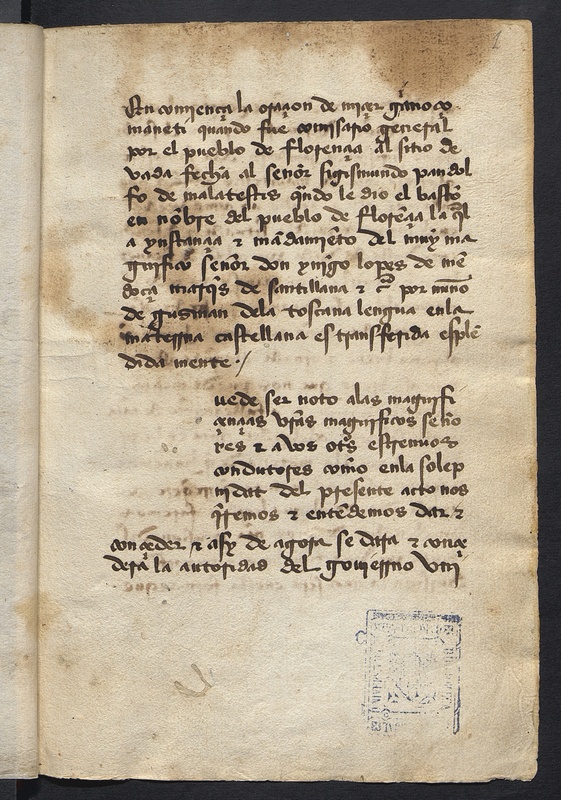 1
En comiença la oraçon de miçer ganoço
maneti quando fue comisario general
por el pueblo de florença al sitio de
vada fecha al señor sigismundo pandol
fo de malatestis qñdo le dio el bastõ
en nõbre del pueblo de florẽça la ql̃
a ynstançia & mãdamiẽto del muy ma
gnifico señor don ynigo lopes de mẽ
doça marq̃s de santillana & cº por nuño
de gusman dela toscana lengua enla
materna castellana es transferida esplẽ
dida mente ·/
uede ser noto alas magnifi
çençias vr̃as magnificos seño
res & a vos otr̃s estremos
condutores como enla solep
nidat del presente acto nos
q̃remos & entẽdemos dar &
conçeder & asy de agora se dara & conçe
dera la autoridad del gouierno vni